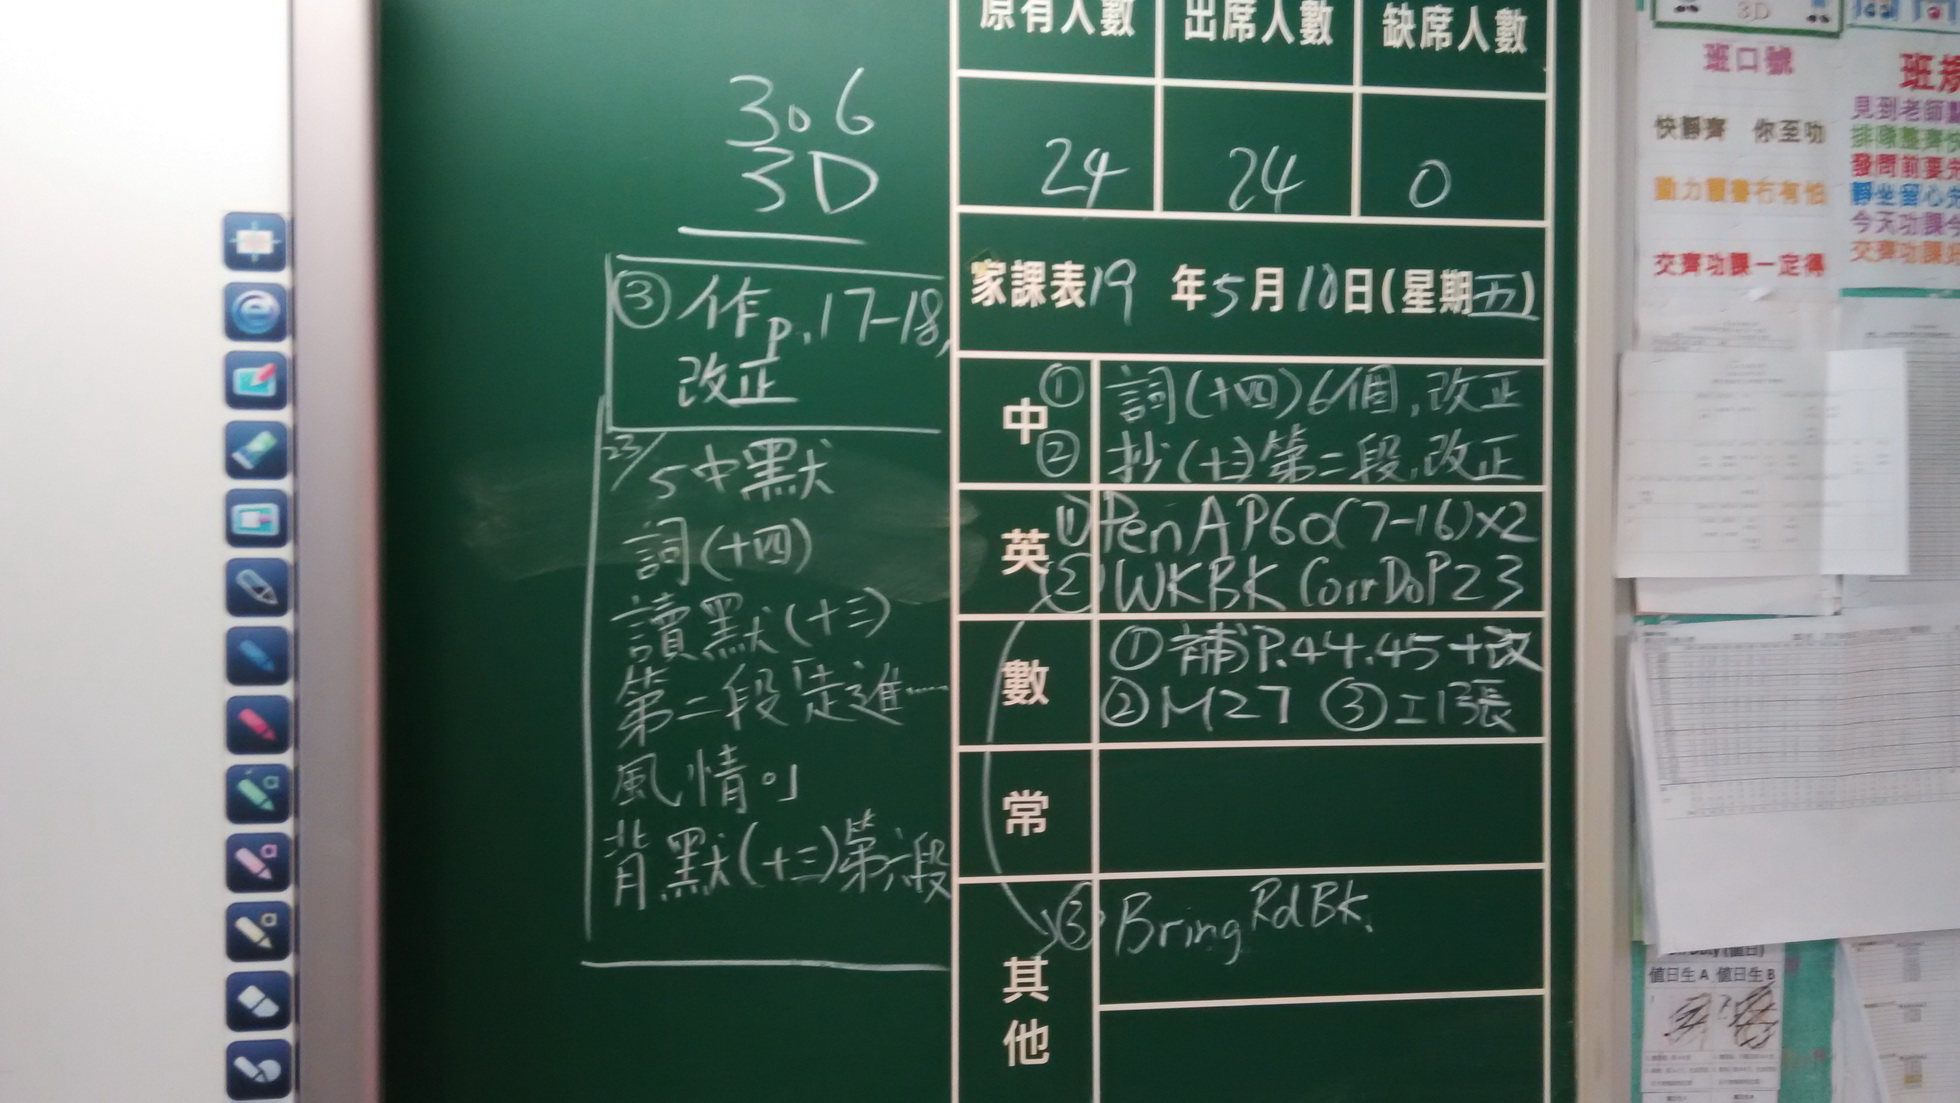 306
3D
原有人數 出席人數 缺席人數
24 24 0
家課表19 年5月10日(星期五)
中 ① 詞(十四)6個,改正
② 抄(十三)第二段,改正
③ 作p.17-18,
改正
英 ① PenA P60(7-16)x2
② WKBK CorrDoP23
數 ① 補P.44.45+改
② M27 ③ 工13張
常
其他 ③ Bring RdBk.
23/5中默
詞(十四)
讀默(十三)
第二段「走進……
風情。」
背默(十三)第六段
3D
班口號
快靜齊 你至叻
動力實書冇有怕
交齊功課一定得
班規
見到老師
排隊整齊快
發問前要先
靜坐留心
今天功課今
交齊功課好
(值日)
值日生A 值日生B